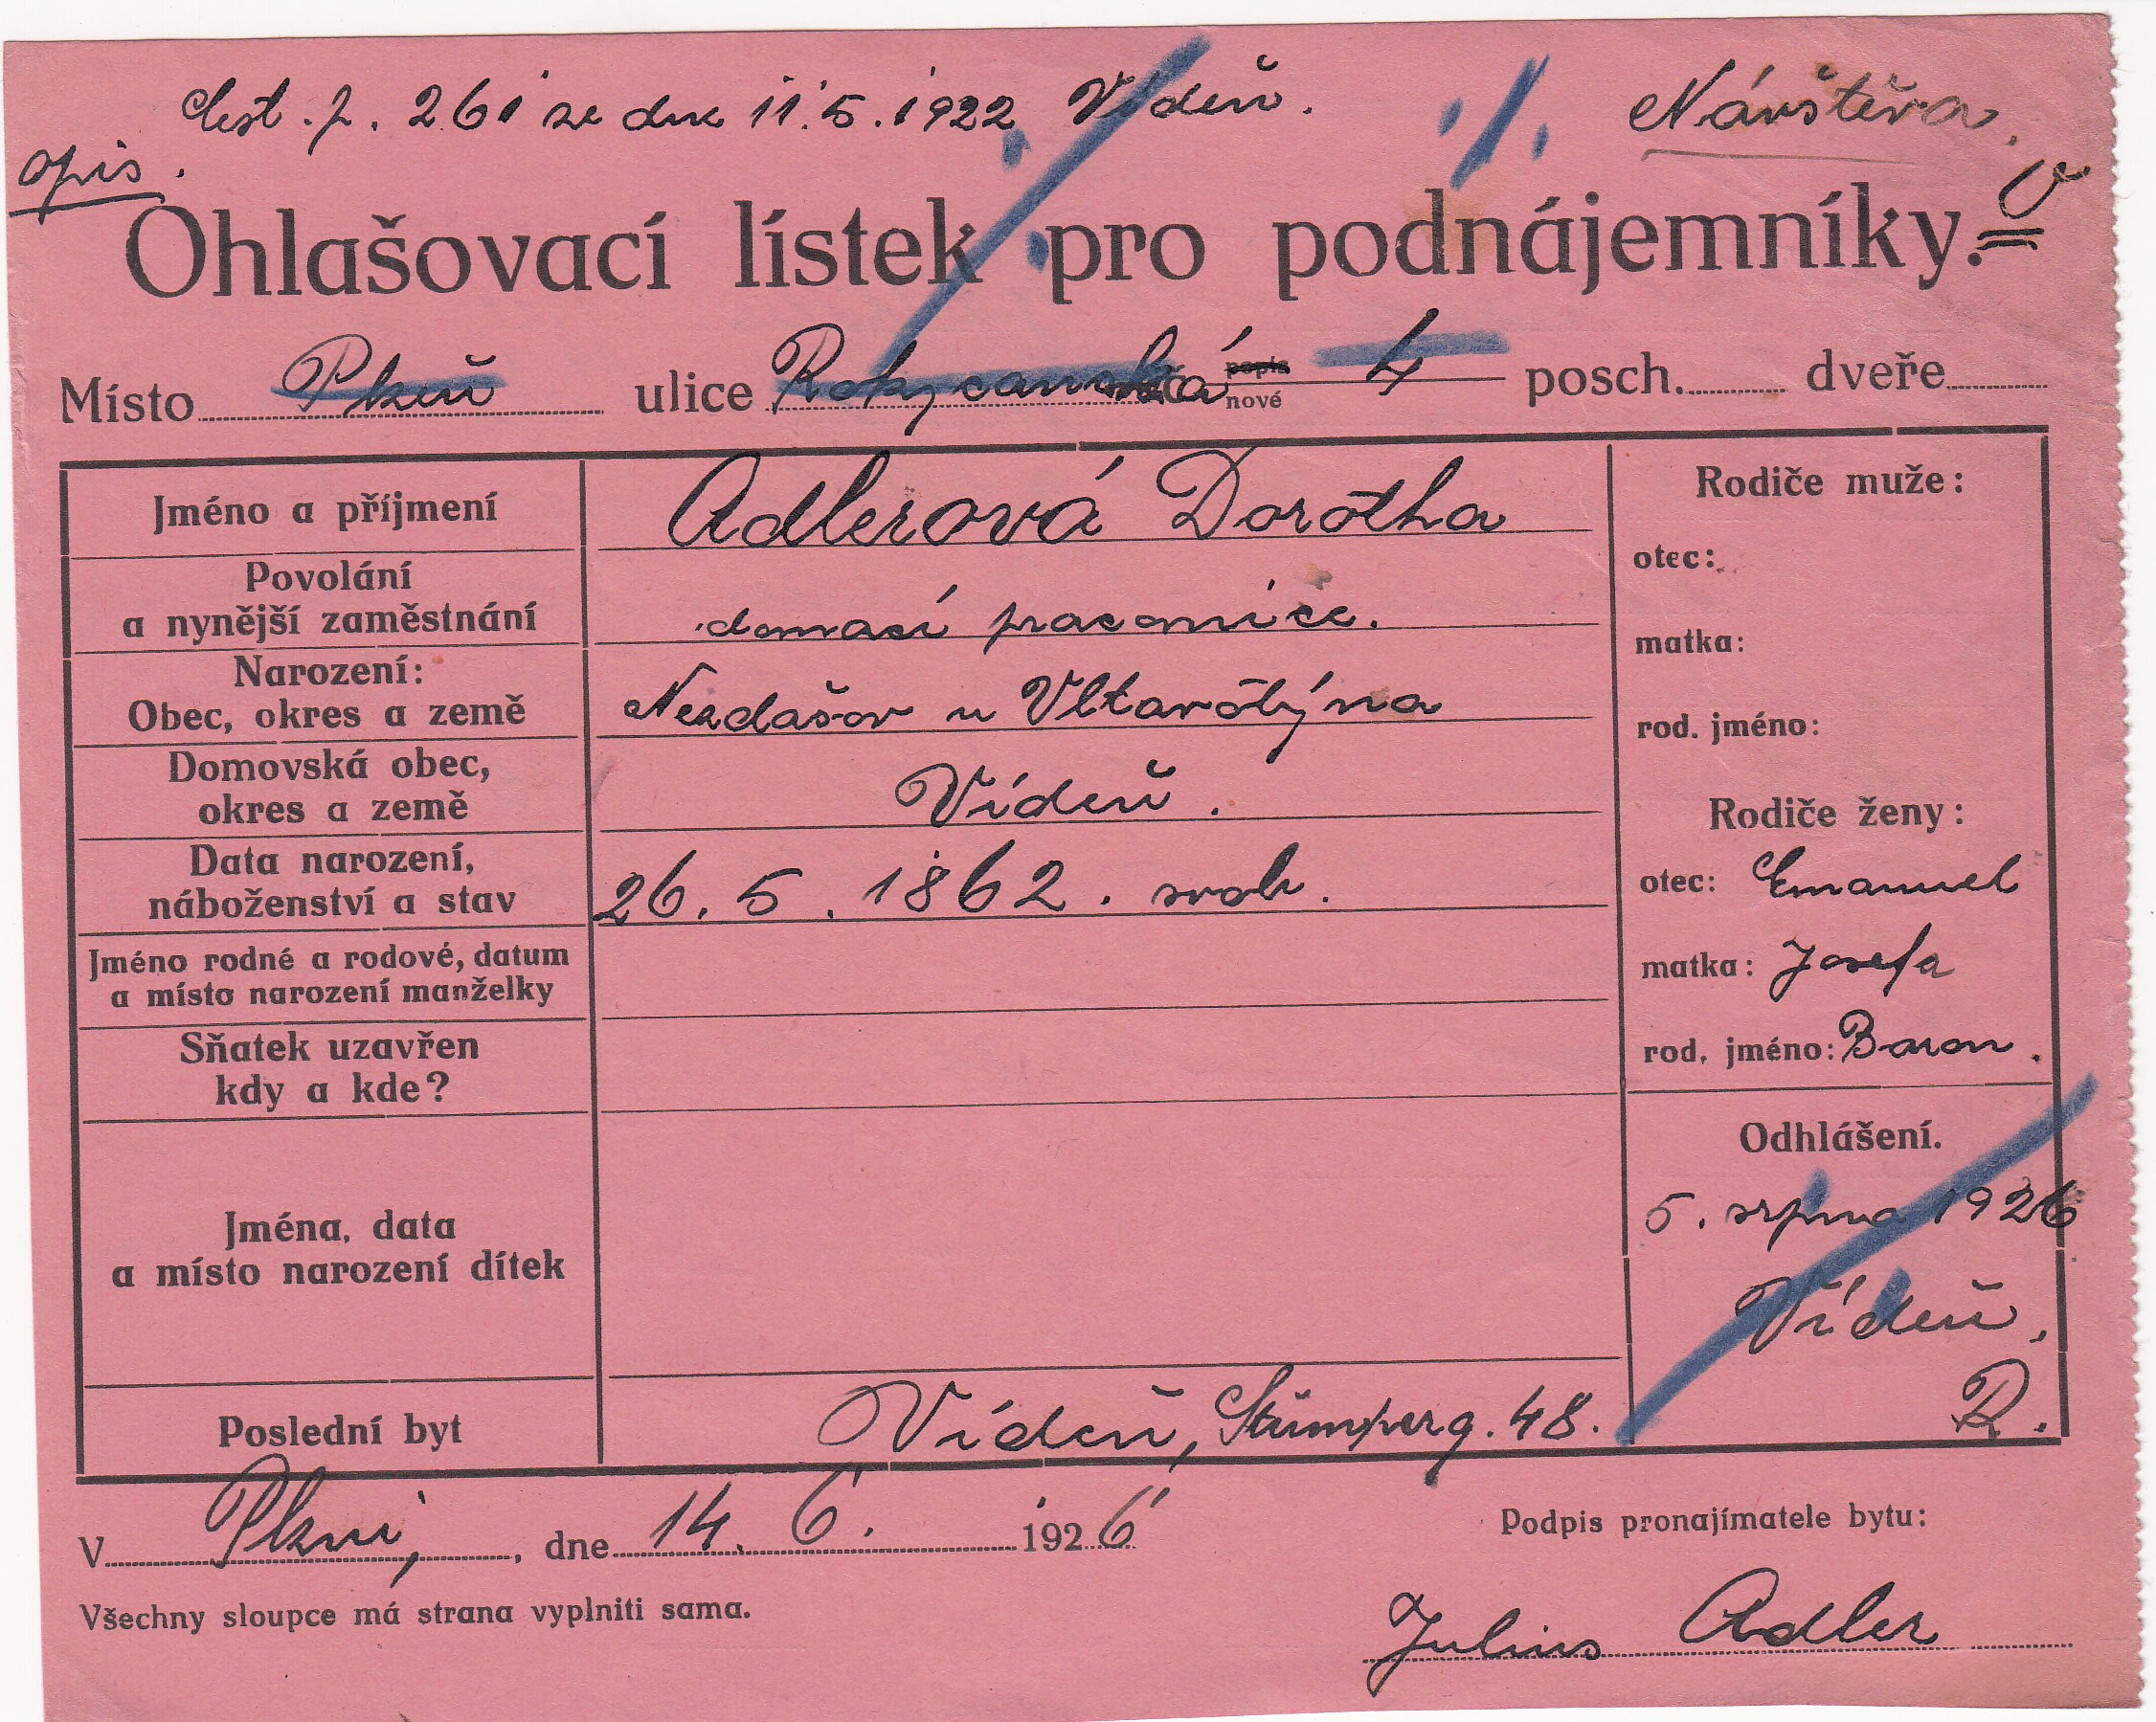 Cest. p. 261 ze dne 11.5.1922 Vídeň.
Návštěva.
opis.
Ohlašovací lístek pro podnájemníky.
Místo Plzeň ulice Rokycanská popis nové 4 posch. dveře
Jméno a příjmení Adlerová Dorotha
Povolání
a nynější zaměstnání domací pracovnice.
Narození:
Obec, okres a země Nezdašov u Vltavotýna
Domovská obec,
okres a země Vídeň.
Data narození,
náboženství a stav 26. 5. 1862. svob.
Jméno rodné a rodové, datum
a místo narození manželky
Sňatek uzavřen
kdy a kde?
Jména, data
a místo narození dítek
Poslední byt Vídeň, Stumperg. 48.
Rodiče muže:
otec:
matka:
rod. jméno:
Rodiče ženy:
otec: Emanuel
matka: Josefa
rod. jméno: Baron.
Odhlášení.
5. srpna 1926
Vídeň.
R.
V Plzni, dne 14. 6. 1926
Podpis pronajímatele bytu:
Všechny sloupce má strana vyplniti sama.
Julius Adler